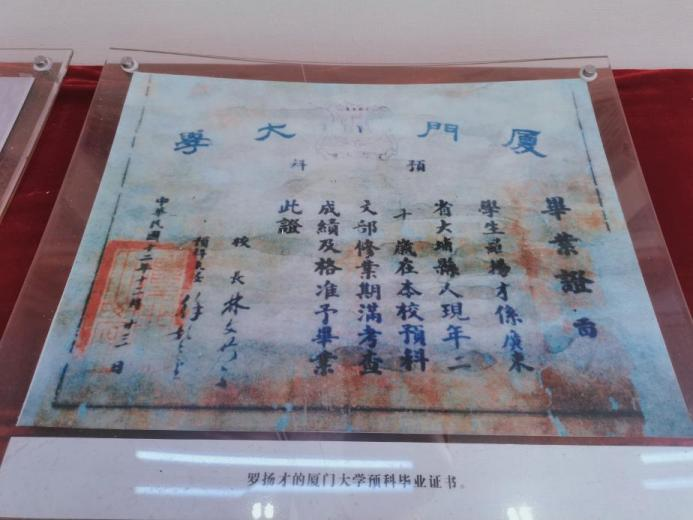 廈門大學
預科
畢業證書
學生羅揚才係廣東
省大埔縣人現年二
十歲在本校預科
文部修業期滿考查
成績及格准予畢業
此證
校長林文慶
中華民國十二年十二月十三日
罗扬才的厦门大学预科毕业证书。